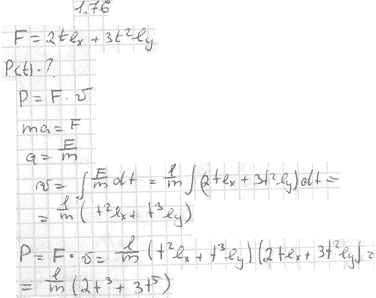 1.76
F = 2t eₓ + 3t² e_y
P(t) - ?
P = F · v
ma = F
a = F/m
v = ∫ F/m dt = 1/m ∫ (2t eₓ + 3t² e_y) dt =
= 1/m ( t² eₓ + t³ e_y )
P = F · v = 1/m (t² eₓ + t³ e_y) (2t eₓ + 3t² e_y) =
= 1/m (2t³ + 3t⁵)